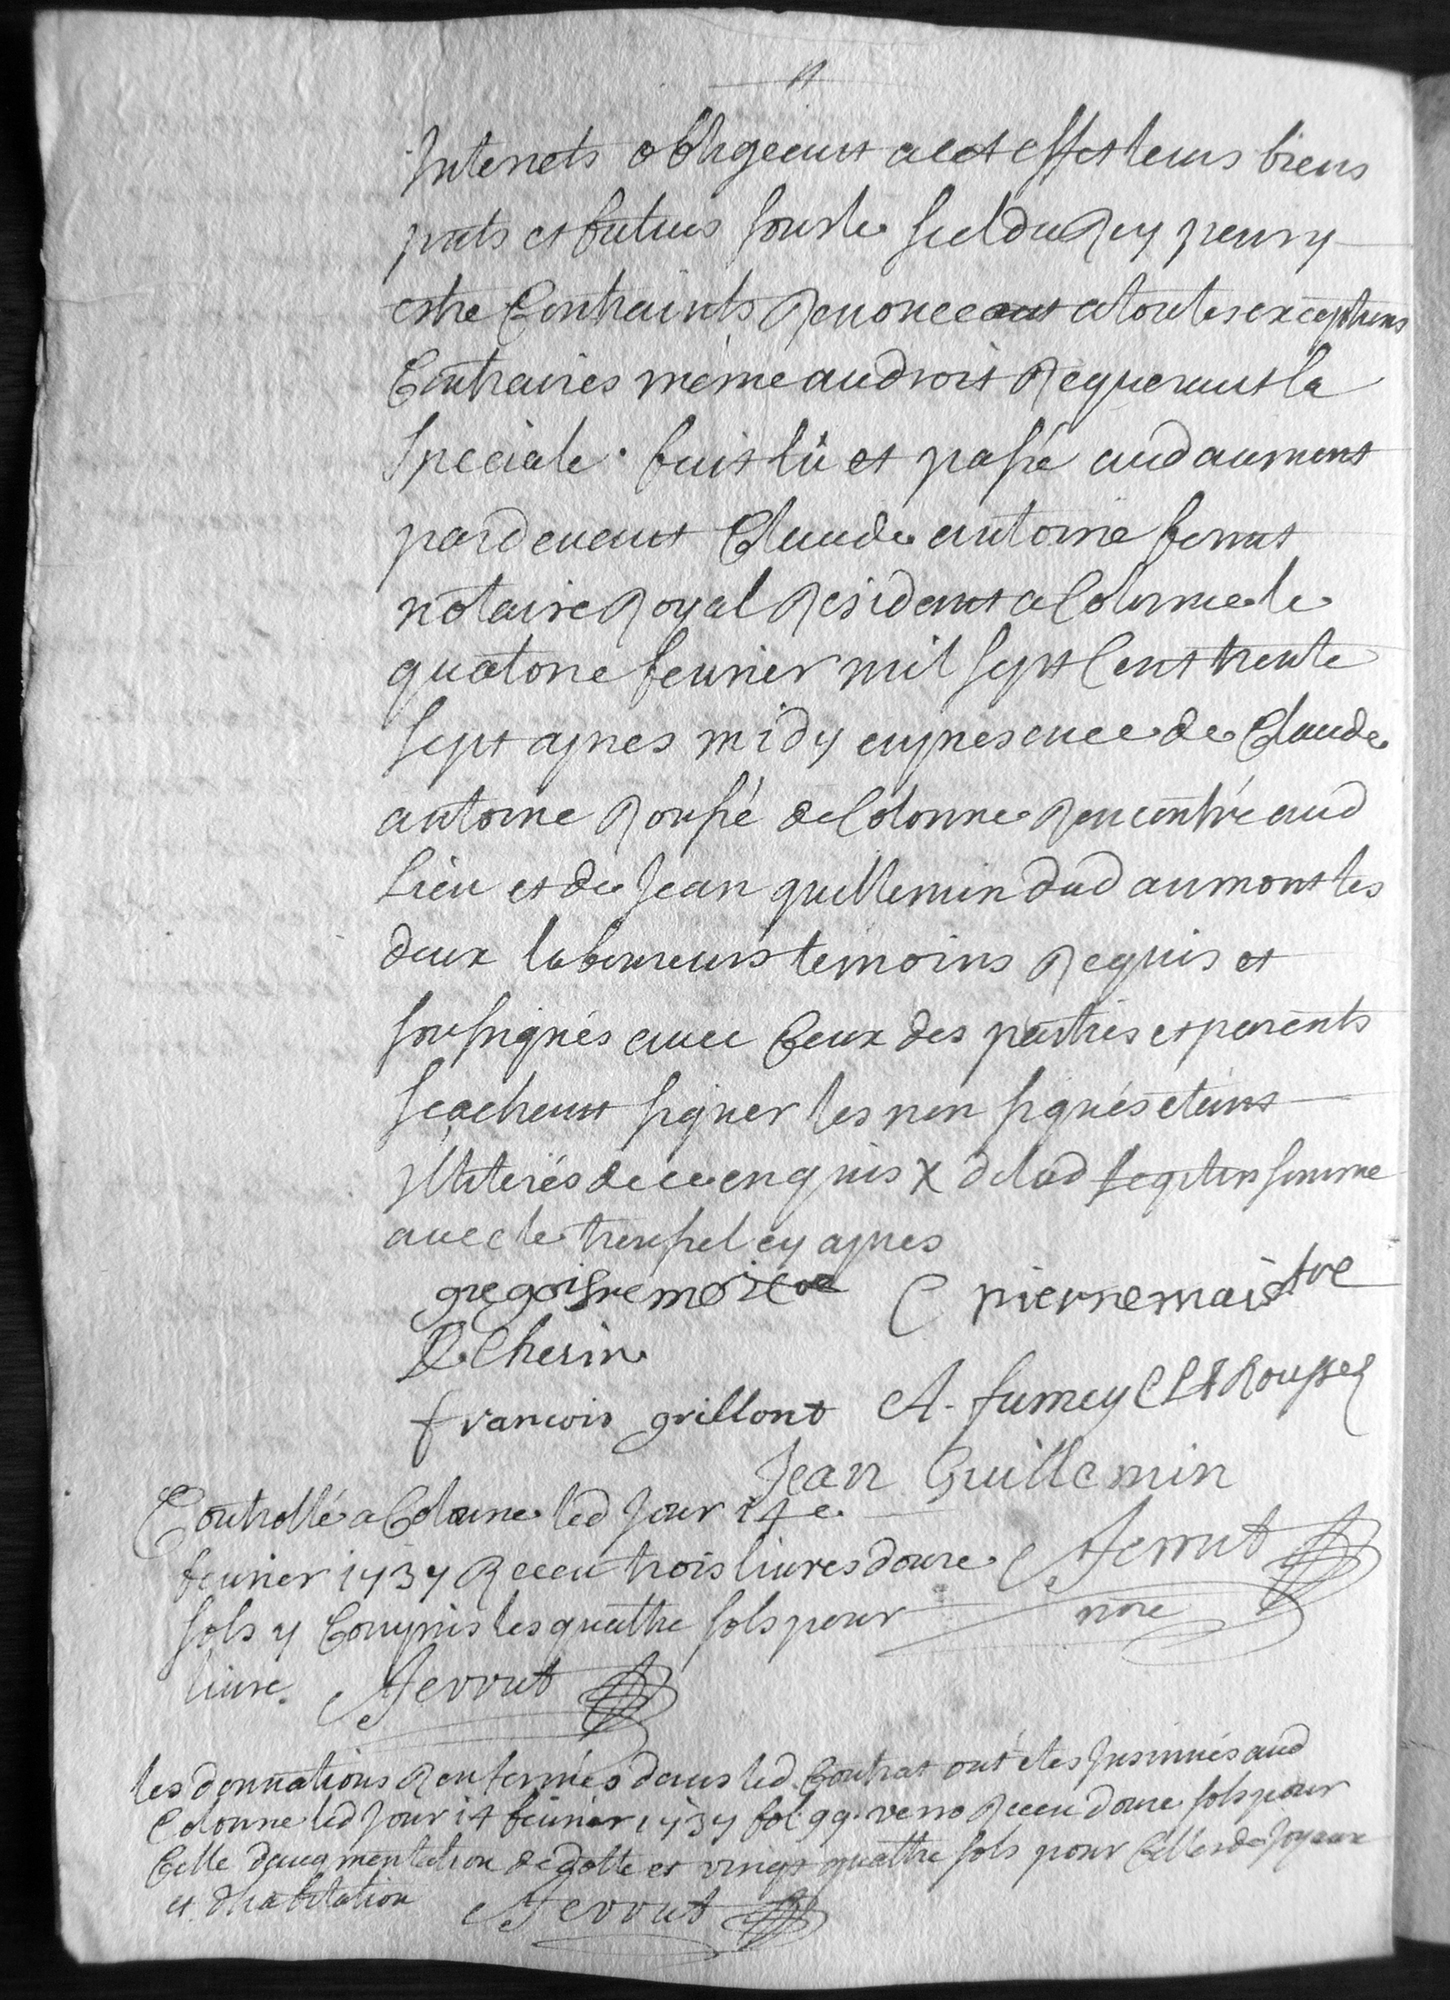 Interets obligeant a cet effet leurs biens
pnts et futurs sous le scel du Roy pour y
estre Contraints Renonceant a toutes exceptions
Contraires même au droit Requerant la
speciale. fait lû et passé aud aumont
pardevant Claude antoine ferrut
notaire Royal Residant a Colonne le
quatorze fevrier mil sept Cent trente
sept apres midy en presence de Claude
antoine Roussé de Colonne Rencontré aud
Lieu et de Jean guillemin dud aumont les
deux laboureurs temoins Requis et
soussignés avec Ceux des parties et parents
scachant signer les non signés étans
illiterés de ce enquis X delad somme
avec le troussel cy apres
gregoisre C pierre maistre
Cherin
francois grillont A. fumey C A Roussé
Jean Guillemin
Controllé a Colonne led Jour 14e
fevrier 1737 Receu trois livres douze Ferrut
sols y Compris les quattre sols pour nore
livre. Ferrut
les donnations Renfermés dans led. Contrat ont étés Insinués aud
Colonne led Jour 14 fevrier 1737 fol. 99. verso Receu douze sols pour
Celle daugmentation de dotte et vingt quattre sols pour Celles de Joyaux
et dhabitation Ferrut